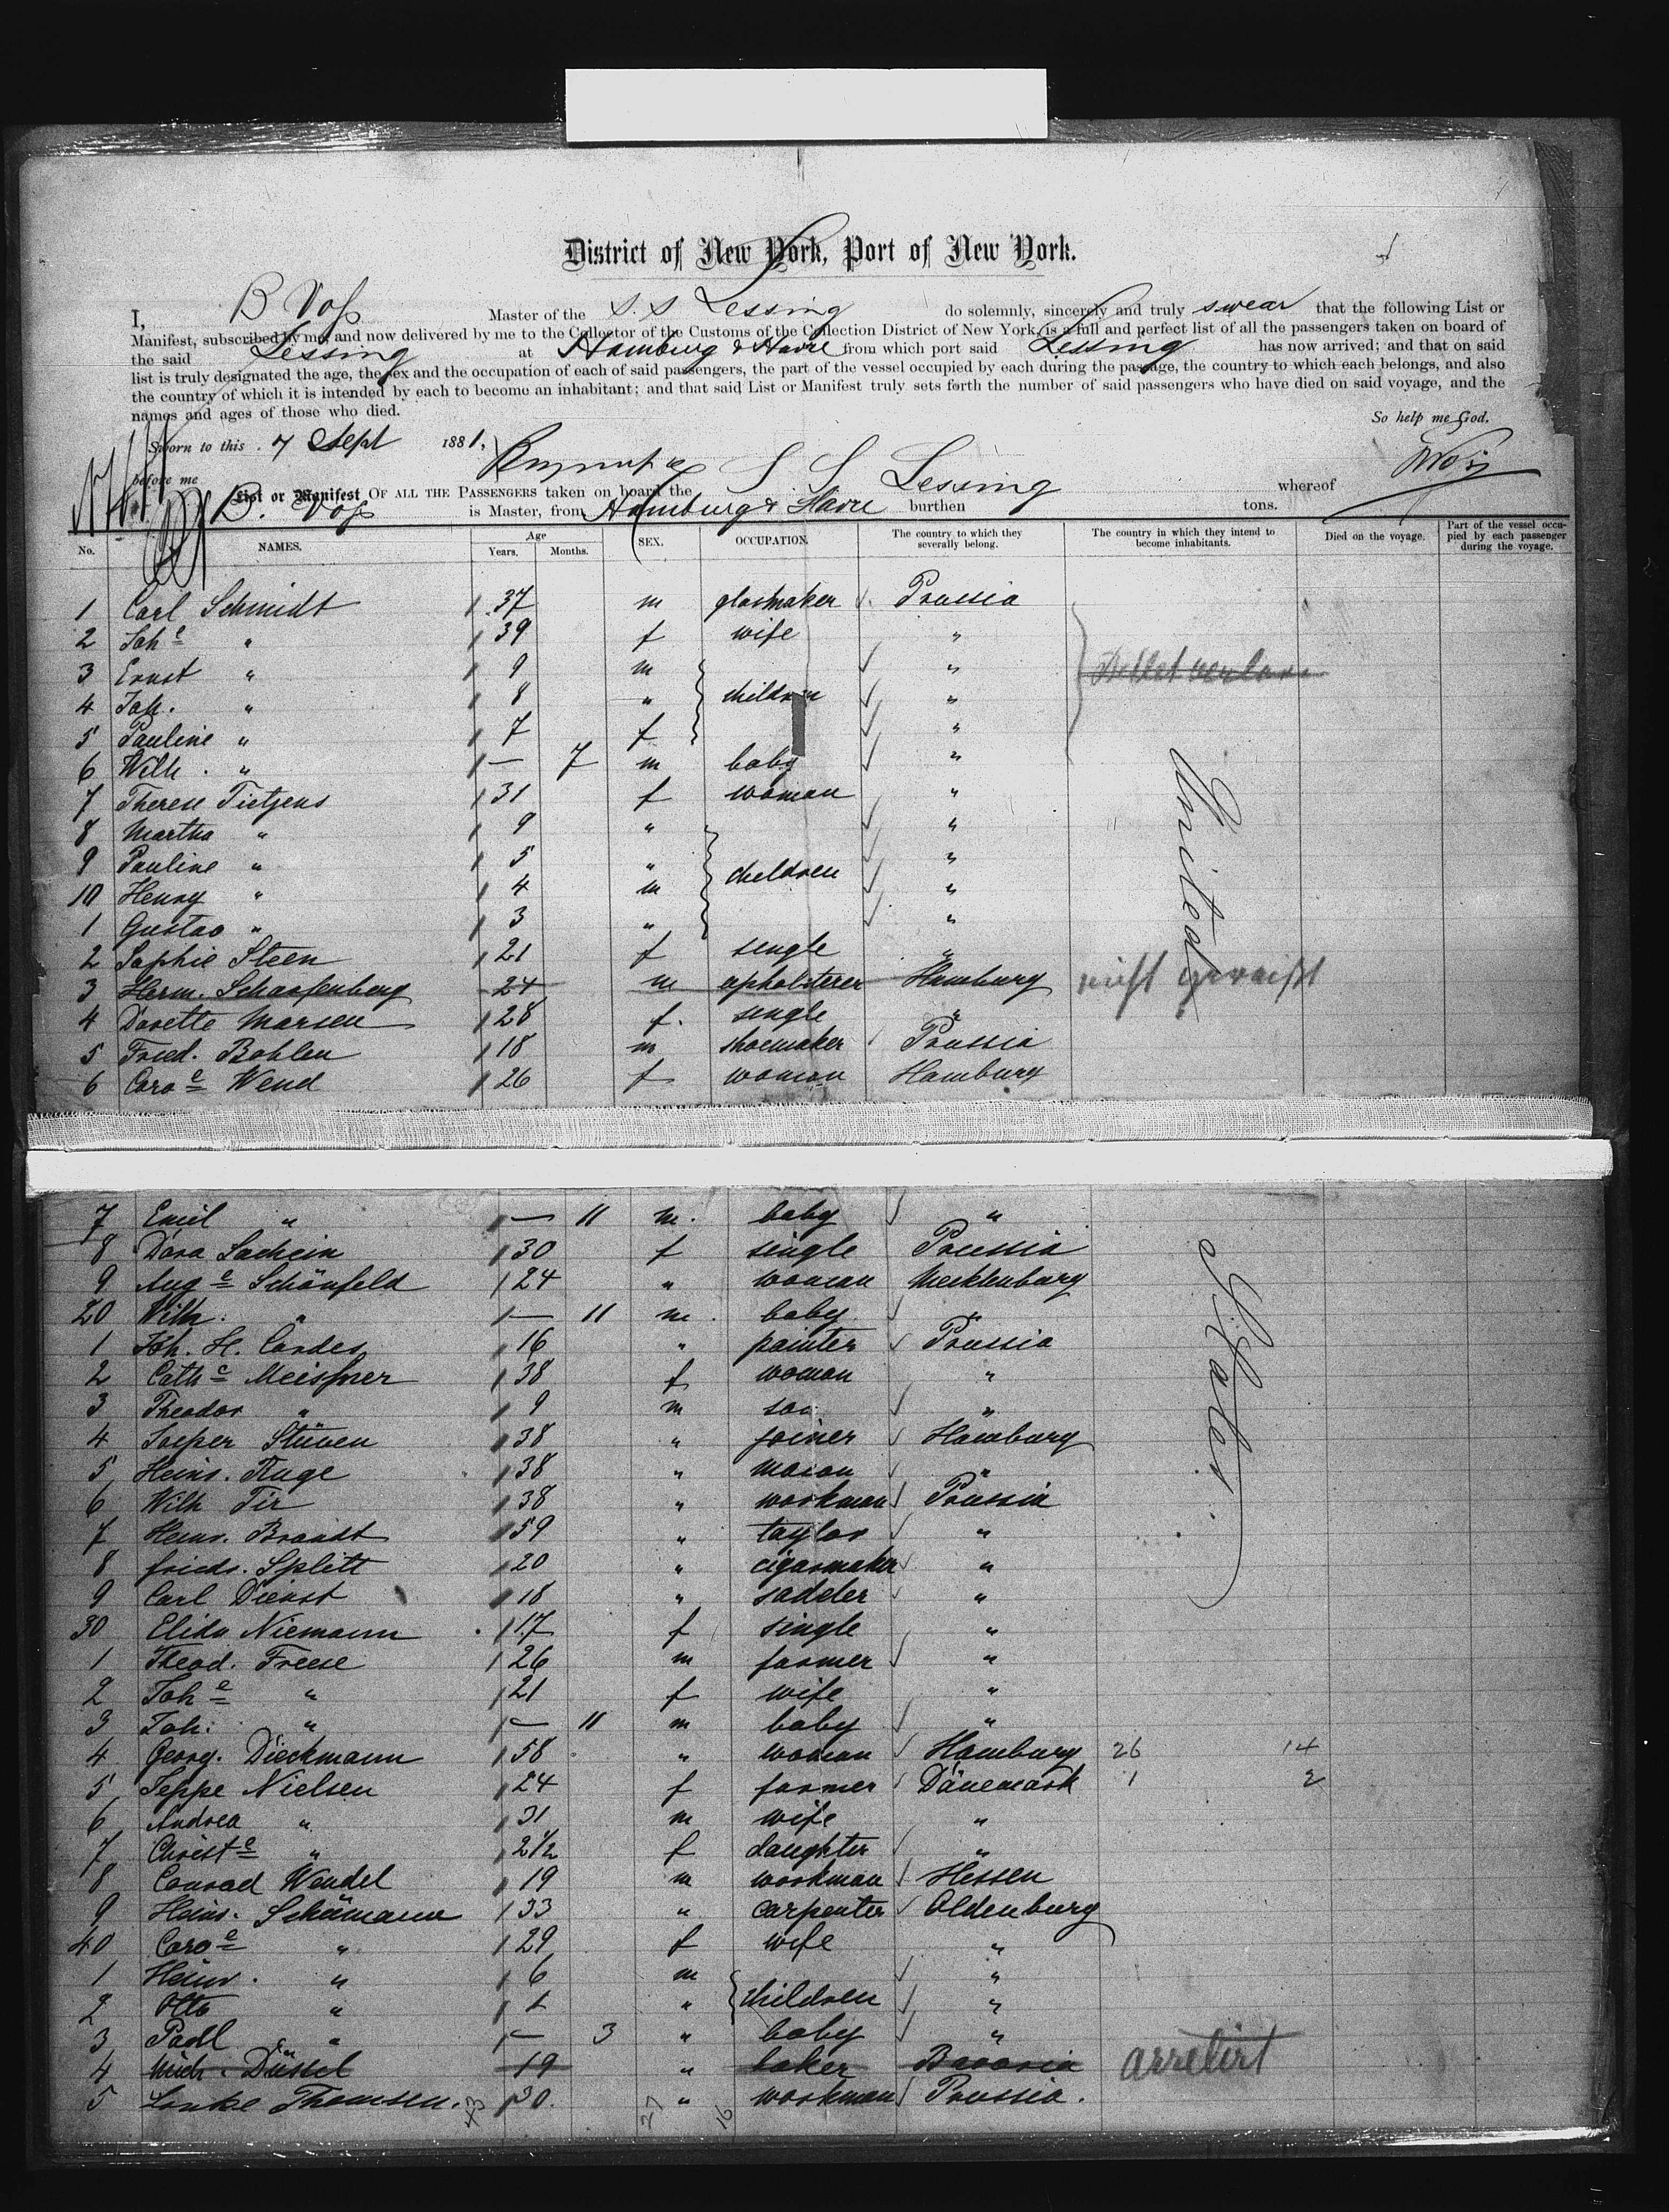 District of New York, Port of New York.
I, B Voß Master of the S.S Lessing do solemnly, sincerely and truly swear that the following List or
Manifest, subscribed by me, and now delivered by me to the Collector of the Customs of the Collection District of New York, is a full and perfect list of all the passengers taken on board of
the said Lessing at Hamburg & Havre from which port said Lessing has now arrived; and that on said
list is truly designated the age, the sex and the occupation of each of said passengers, the part of the vessel occupied by each during the passage, the country to which each belongs, and also
the country of which it is intended by each to become an inhabitant; and that said List or Manifest truly sets forth the number of said passengers who have died on said voyage, and the
names and ages of those who died.
So help me God.
Sworn to this 7 Sept 1881,
before me
List or Manifest OF ALL THE PASSENGERS taken on board the S S Lessing whereof
B. Voß is Master, from Hamburg & Havre burthen tons.
No. NAMES. Age Years. Months. SEX. OCCUPATION. The country to which they severally belong. The country in which they intend to become inhabitants. Died on the voyage. Part of the vessel occupied by each passenger during the voyage.
1 Carl Schmidt 37 m glasmaker Prussia
2 Johe " 39 f wife "
3 Ernst " 9 m "
4 Joh. " 8 " children "
5 Pauline " 7 f "
6 Wilh. " — 7 m baby "
7 Therese Tietjens 31 f woman "
8 Martha " 9 " "
9 Pauline " 5 " children "
10 Henry " 4 m "
1 Gustav " 3 " "
2 Sophie Steen 21 f single "
3 Herm. Scharfenberg 24 m upholsterer Hamburg
4 Dorette Marsen 28 f. single "
5 Fried. Bohlen 18 m shoemaker Prussia
6 Caroe Wend 26 f woman Hamburg
United
7 Emil " — 11 m. baby "
8 Dora 30 f single Prussia
9 Auge Schönfeld 24 " woman Mecklenburg
20 Wilh. " — 11 m. baby "
1 Joh. H. Cordes 16 " painter Prussia
2 Cathe Meissner 38 f woman "
3 Theodor " 9 m son "
4 Stüven 38 " joiner Hamburg
5 Heinr. Ruge 38 " mason "
6 Wilh Tir 38 " workman Prussia
7 Heinr. Brandt 59 " taylor "
8 friedr. Splitt 20 " cigarmaker "
9 Carl Dienst 18 " saddler "
30 Elida Niemann 17 f single "
1 Theod. Freese 26 m farmer "
2 Johe " 21 f wife "
3 Joh. " — 11 m baby "
4 Georg. Dieckmann 58 " woman Hamburg 26 14
5 Jeppe Nielsen 24 f farmer Dänemark 1 2
6 Andrea " 31 m wife "
7 Christe " 2 1/2 f daughter "
8 Conrad Wendel 19 m workman Hessen
9 Heinr. Schümann 33 " carpenter Oldenburg
40 Caroe " 29 f wife "
1 Heinr. " 6 m "
2 Otto " 1 " children "
3 Paul " — 3 " baby "
4 Mich. Düssel 19 " baker Bavaria arretirt
5 Lonke Thomsen. 30. " workman Prussia.
States.
43 27 16